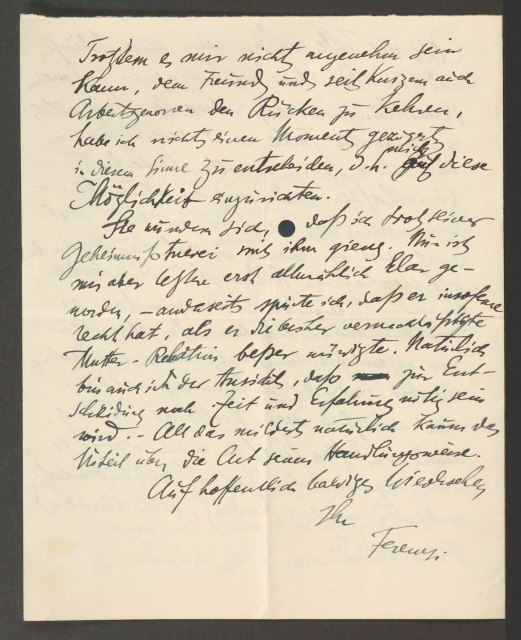 Trotzdem es mir nicht angenehm sein
kann, dem Freund und seit kurzem auch
Arbeitsgenossen den Rücken zu kehren,
habe ich nicht einen Moment gezögert
in diesem Sinne zu entscheiden, d.h. mich auf diese
Möglichkeit einzurichten.
Sie wundern sich, daß ich trotz seiner
Geheimnißtuerei mit ihm gieng. Nun ist
mir aber letztere erst allmählich klar ge-
worden, – andrerseits spürte ich, daß er insoferne
recht hat, als er die bisher vernachläßigte
Mutter-Relation beßer würdigte. Natürlich
bin auch ich der Ansicht, daß zur Ent-
scheidung noch Zeit und Erfahrung nötig sein
wird. – All das mildert natürlich kaum das
Urteil über die Art seiner Handlungsweise.
Auf hoffentlich baldiges Wiedersehen
Ihr
Ferenczi